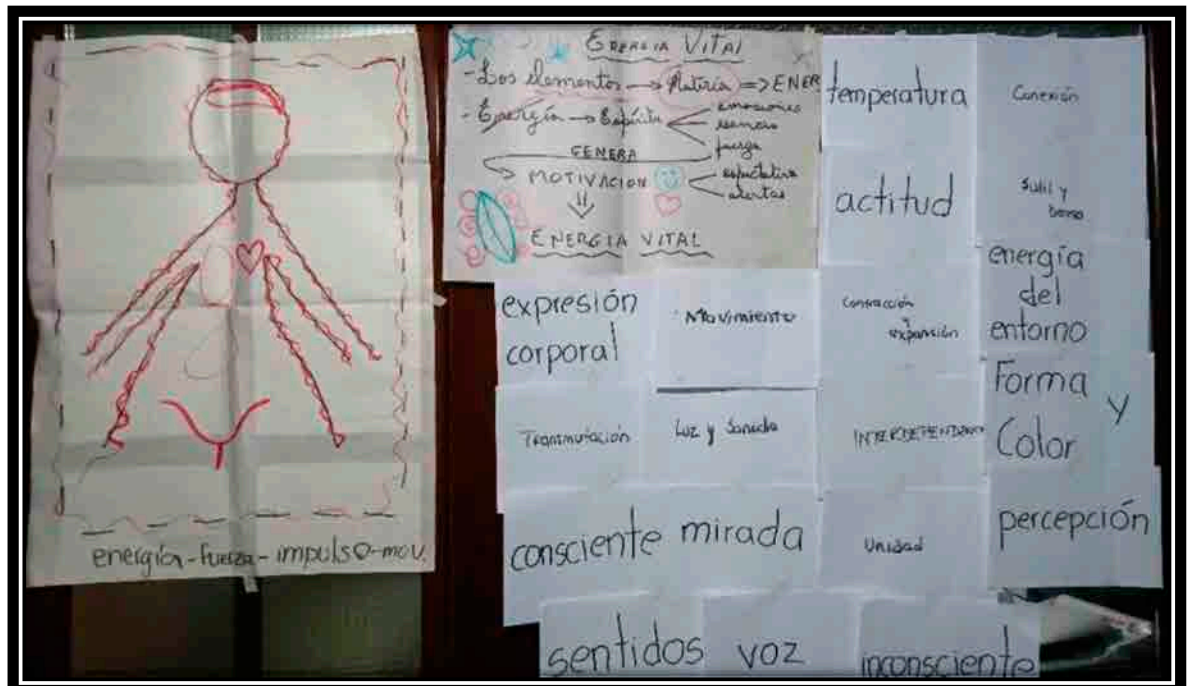 energía - fuerza - impulso - mov.
ENERGIA VITAL
- Los elementos → Materia => ENER
- Energía → Espíritu
emociones
fuerza
GENERA
→ MOTIVACION
alertas
ENERGIA VITAL
temperatura
Conexión
actitud
Sutil y
denso
expresión
corporal
Movimiento
Contracción
y
expansión
energía
del
entorno
Transmutación
Luz y Sonido
Forma
y
Color
consciente
mirada
Unidad
percepción
sentidos
voz
inconsciente